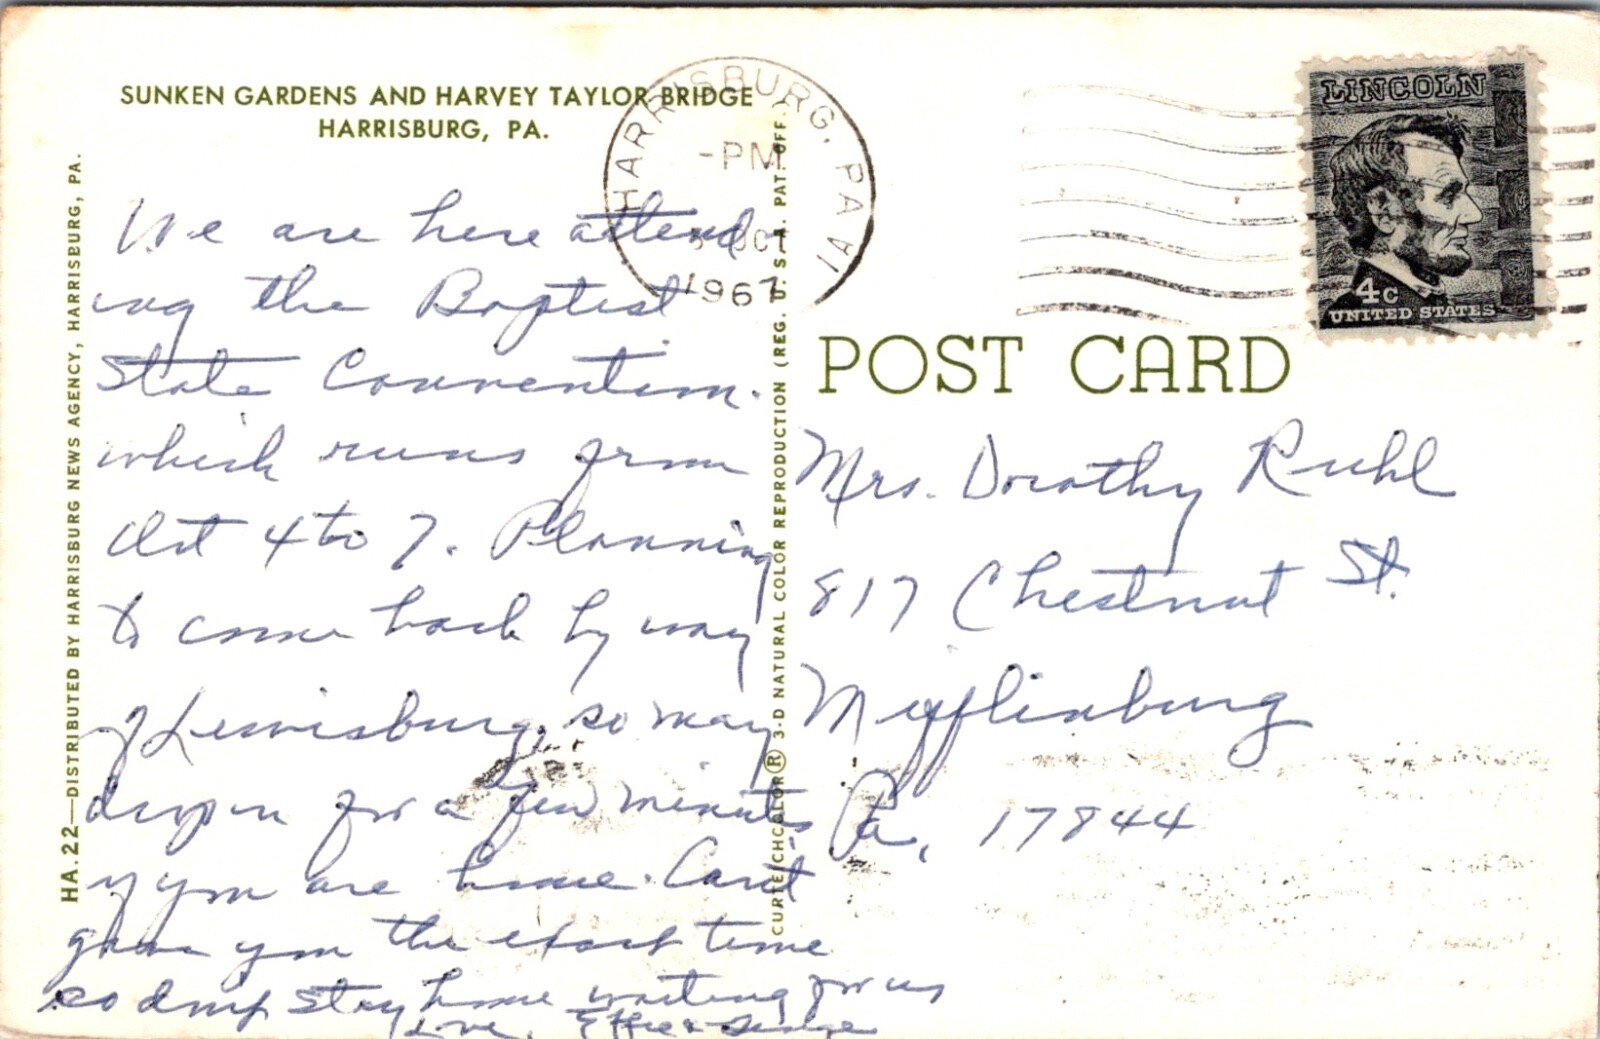 SUNKEN GARDENS AND HARVEY TAYLOR BRIDGE
HARRISBURG, PA.
We are here attend-
ing the Baptist
State Convention.
which runs from
Oct 4 to 7. Planning
to come back by way
of Lewisburg, so may
drop in for a few minutes
if you are home. Can't
give you the exact time
so don't stay home waiting for us
Love, Effie & George
HA.22—DISTRIBUTED BY HARRISBURG NEWS AGENCY, HARRISBURG, PA.
CURTEICHCOLOR® 3-D NATURAL COLOR REPRODUCTION (REG. U. S. A. PAT. OFF.)
HARRISBURG, PA
-PM
OCT
1967
LINCOLN
4c
UNITED STATES
POST CARD
Mrs. Dorothy Ruhl
817 Chestnut St.
Mifflinburg
Pa, 17844